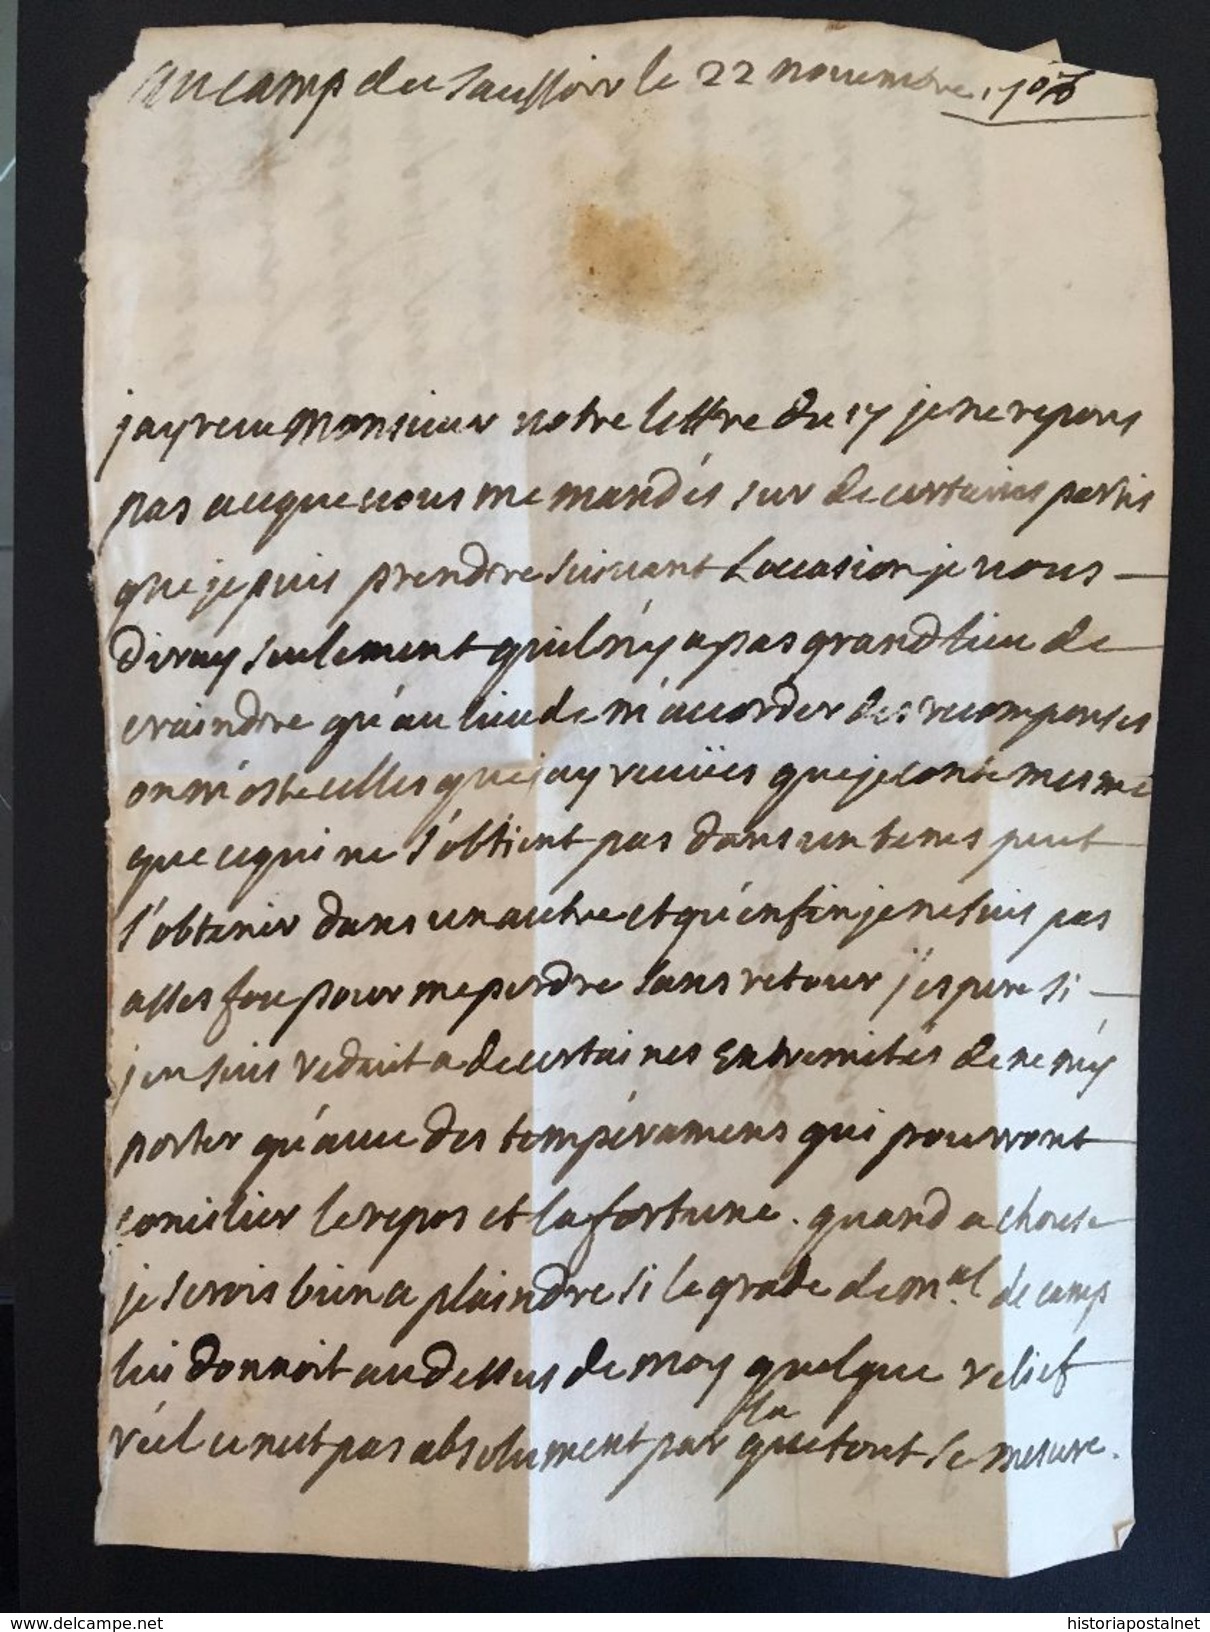 au camp du Saussoir le 22 nouembre 1706
jay receu Monsieur vostre lettre du 17 je ne repons
pas a ce que vous me mandés sur de certains partis
que je puis prendre suivant l'occasion je vous
diray seulement quil n'y a pas grand lieu de
craindre qu'au lieu de m'accorder des recompenses
on m'oste celles que jay receües que je conte mesme
que ce qui ne s'obtient pas dans un tems peut
s'obtenir dans un autre et qu'enfin je ne suis pas
asses fou pour me perdre sans retour j'espere si
j'en suis reduit a de certaines extremités de ne m'y
porter qu'avec des temperamens qui pourront
concilier le repos et la fortune. quand a
je serois bien a plaindre si le grade de mal de camp
lui donnoit au dessus de moy quelque relief
ce n'est pas absolument par la que tout se mesure.
delcampe.net
historiapostalnet